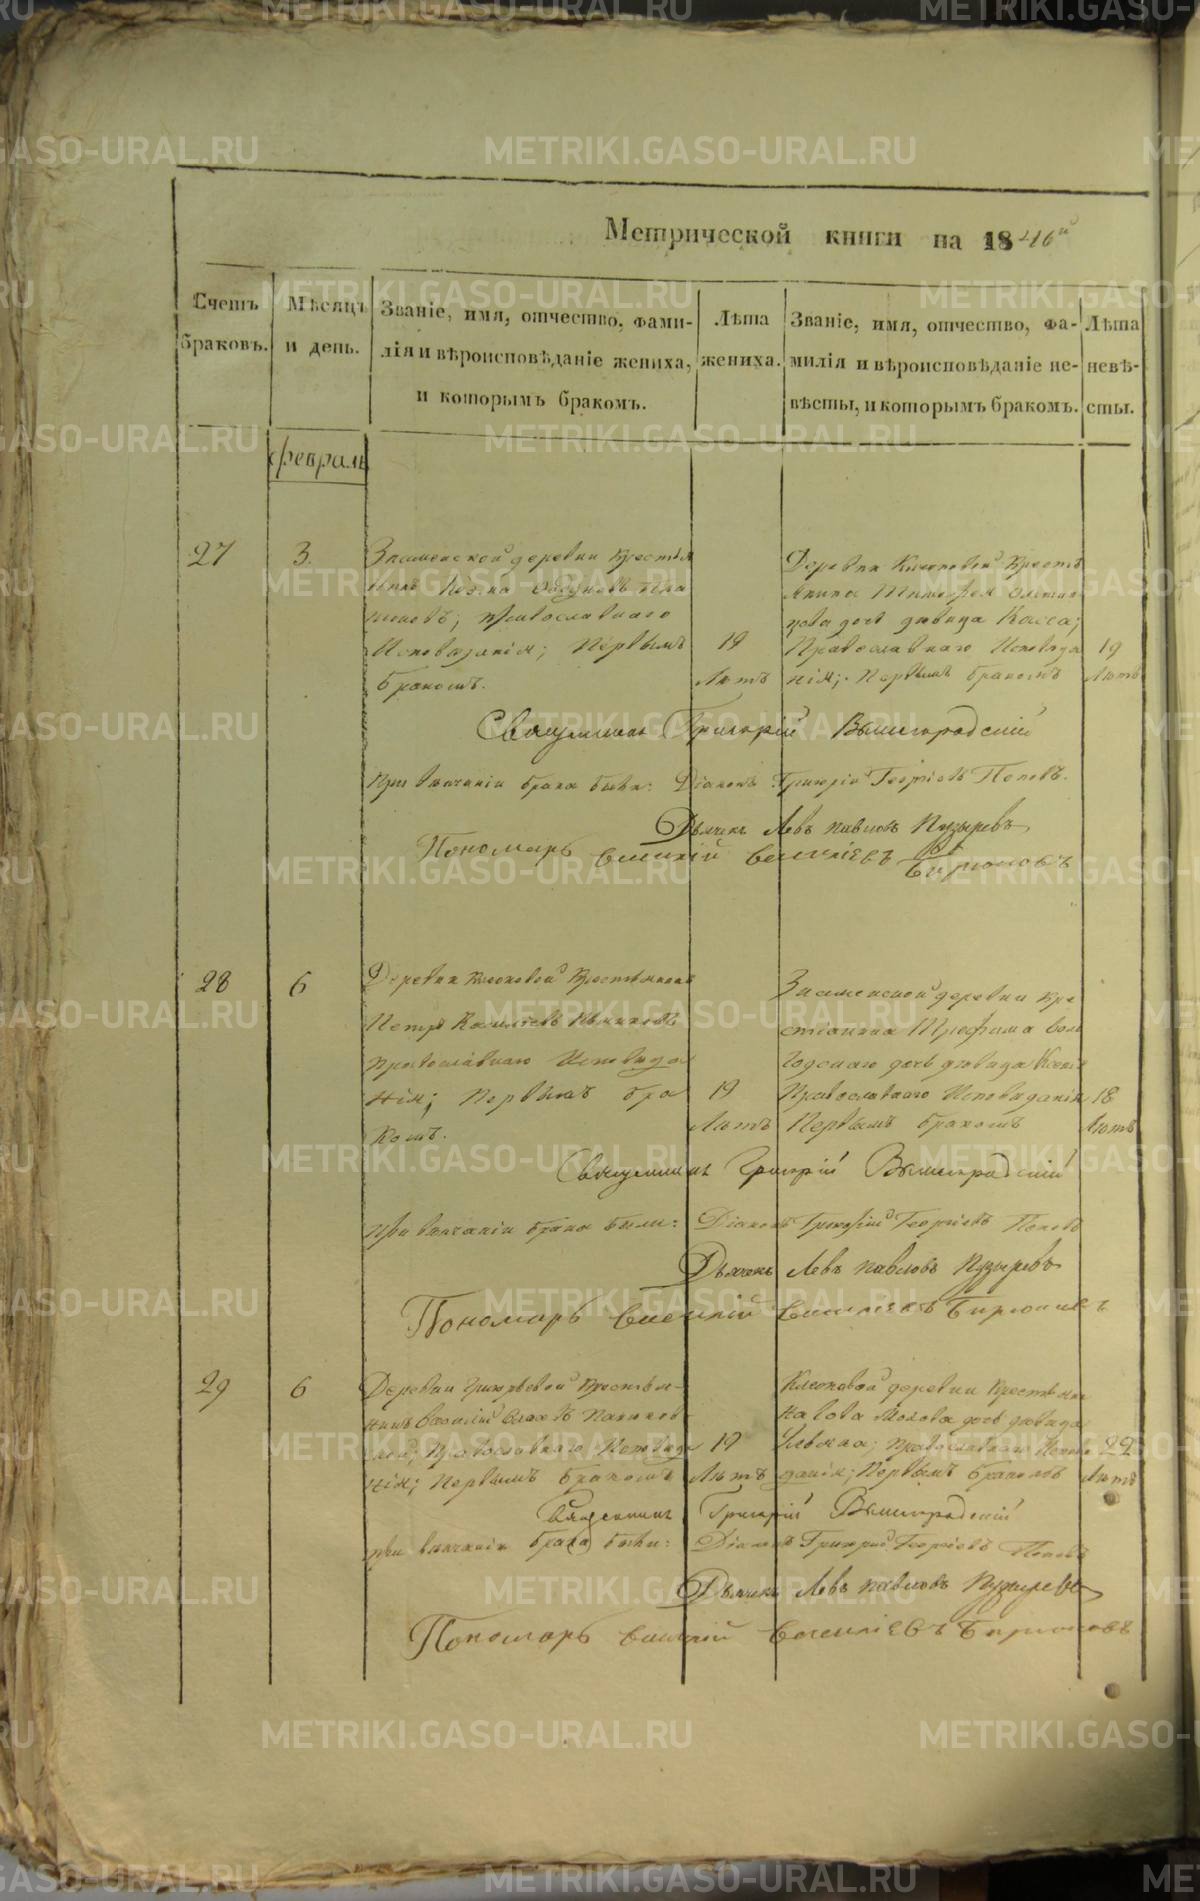 Метрической книги на 1846й
Счетъ браковъ.
Мѣсяцъ и день.
Званіе, имя, отчество, фами-
лія и вѣроисповѣданіе жениха,
и которымъ бракомъ.
Лѣта
жениха.
Званіе, имя, отчество, фа-
милія и вѣроисповѣданіе не-
вѣсты, и которымъ бракомъ.
Лѣта
невѣ-
сты.
февраль
27
3.
Знаменской деревни крестья
нинъ
православнаго
Исповѣданія; Первымъ
бракомъ.
19
Лѣтъ
Деревни Крестъ
дочь дѣвица
Православнаго Исповѣда
нія; Первымъ бракомъ
19
Лѣтъ
Священникъ Григорій Вышегородскій
При вѣнчаніи брака были: Діаконъ Григорій Георгіевъ Поповъ.
Дьячекъ Левъ Павловъ Пузыревъ
Пономарь Василій Васильевъ Бирюковъ
28
6
Деревни Крестьянинъ
Петръ
Православнаго Исповѣда
нія; Первымъ бра
комъ.
19
Лѣтъ
Знаменской деревни кре
стіанина Трефима Вол
годскаго дочь дѣвица Ксенія
Православнаго Исповѣданія
Первымъ бракомъ
18
Лѣтъ
Священникъ Григорій Вышегородскій
При вѣнчаніи брака были: Діаконъ Григорій Георгіевъ Поповъ
Дьячекъ Левъ Павловъ Пузыревъ
Пономарь Василій Васильевъ Бирюковъ
29
6
Деревни Григорьевой Крестья-
нинъ Василій
Православнаго Исповѣда
нія; Первымъ бракомъ
19
Лѣтъ
деревни Крестьяни
на дочь дѣвица
Православнаго Исповѣ
данія; Первымъ бракомъ
22
Лѣтъ
Священникъ Григорій Вышегородскій
При вѣнчаніи брака были: Діаконъ Григорій Георгіевъ Поповъ
Дьячекъ Левъ Павловъ Пузыревъ
Пономарь Василій Васильевъ Бирюковъ
METRIKI.GASO-URAL.RU